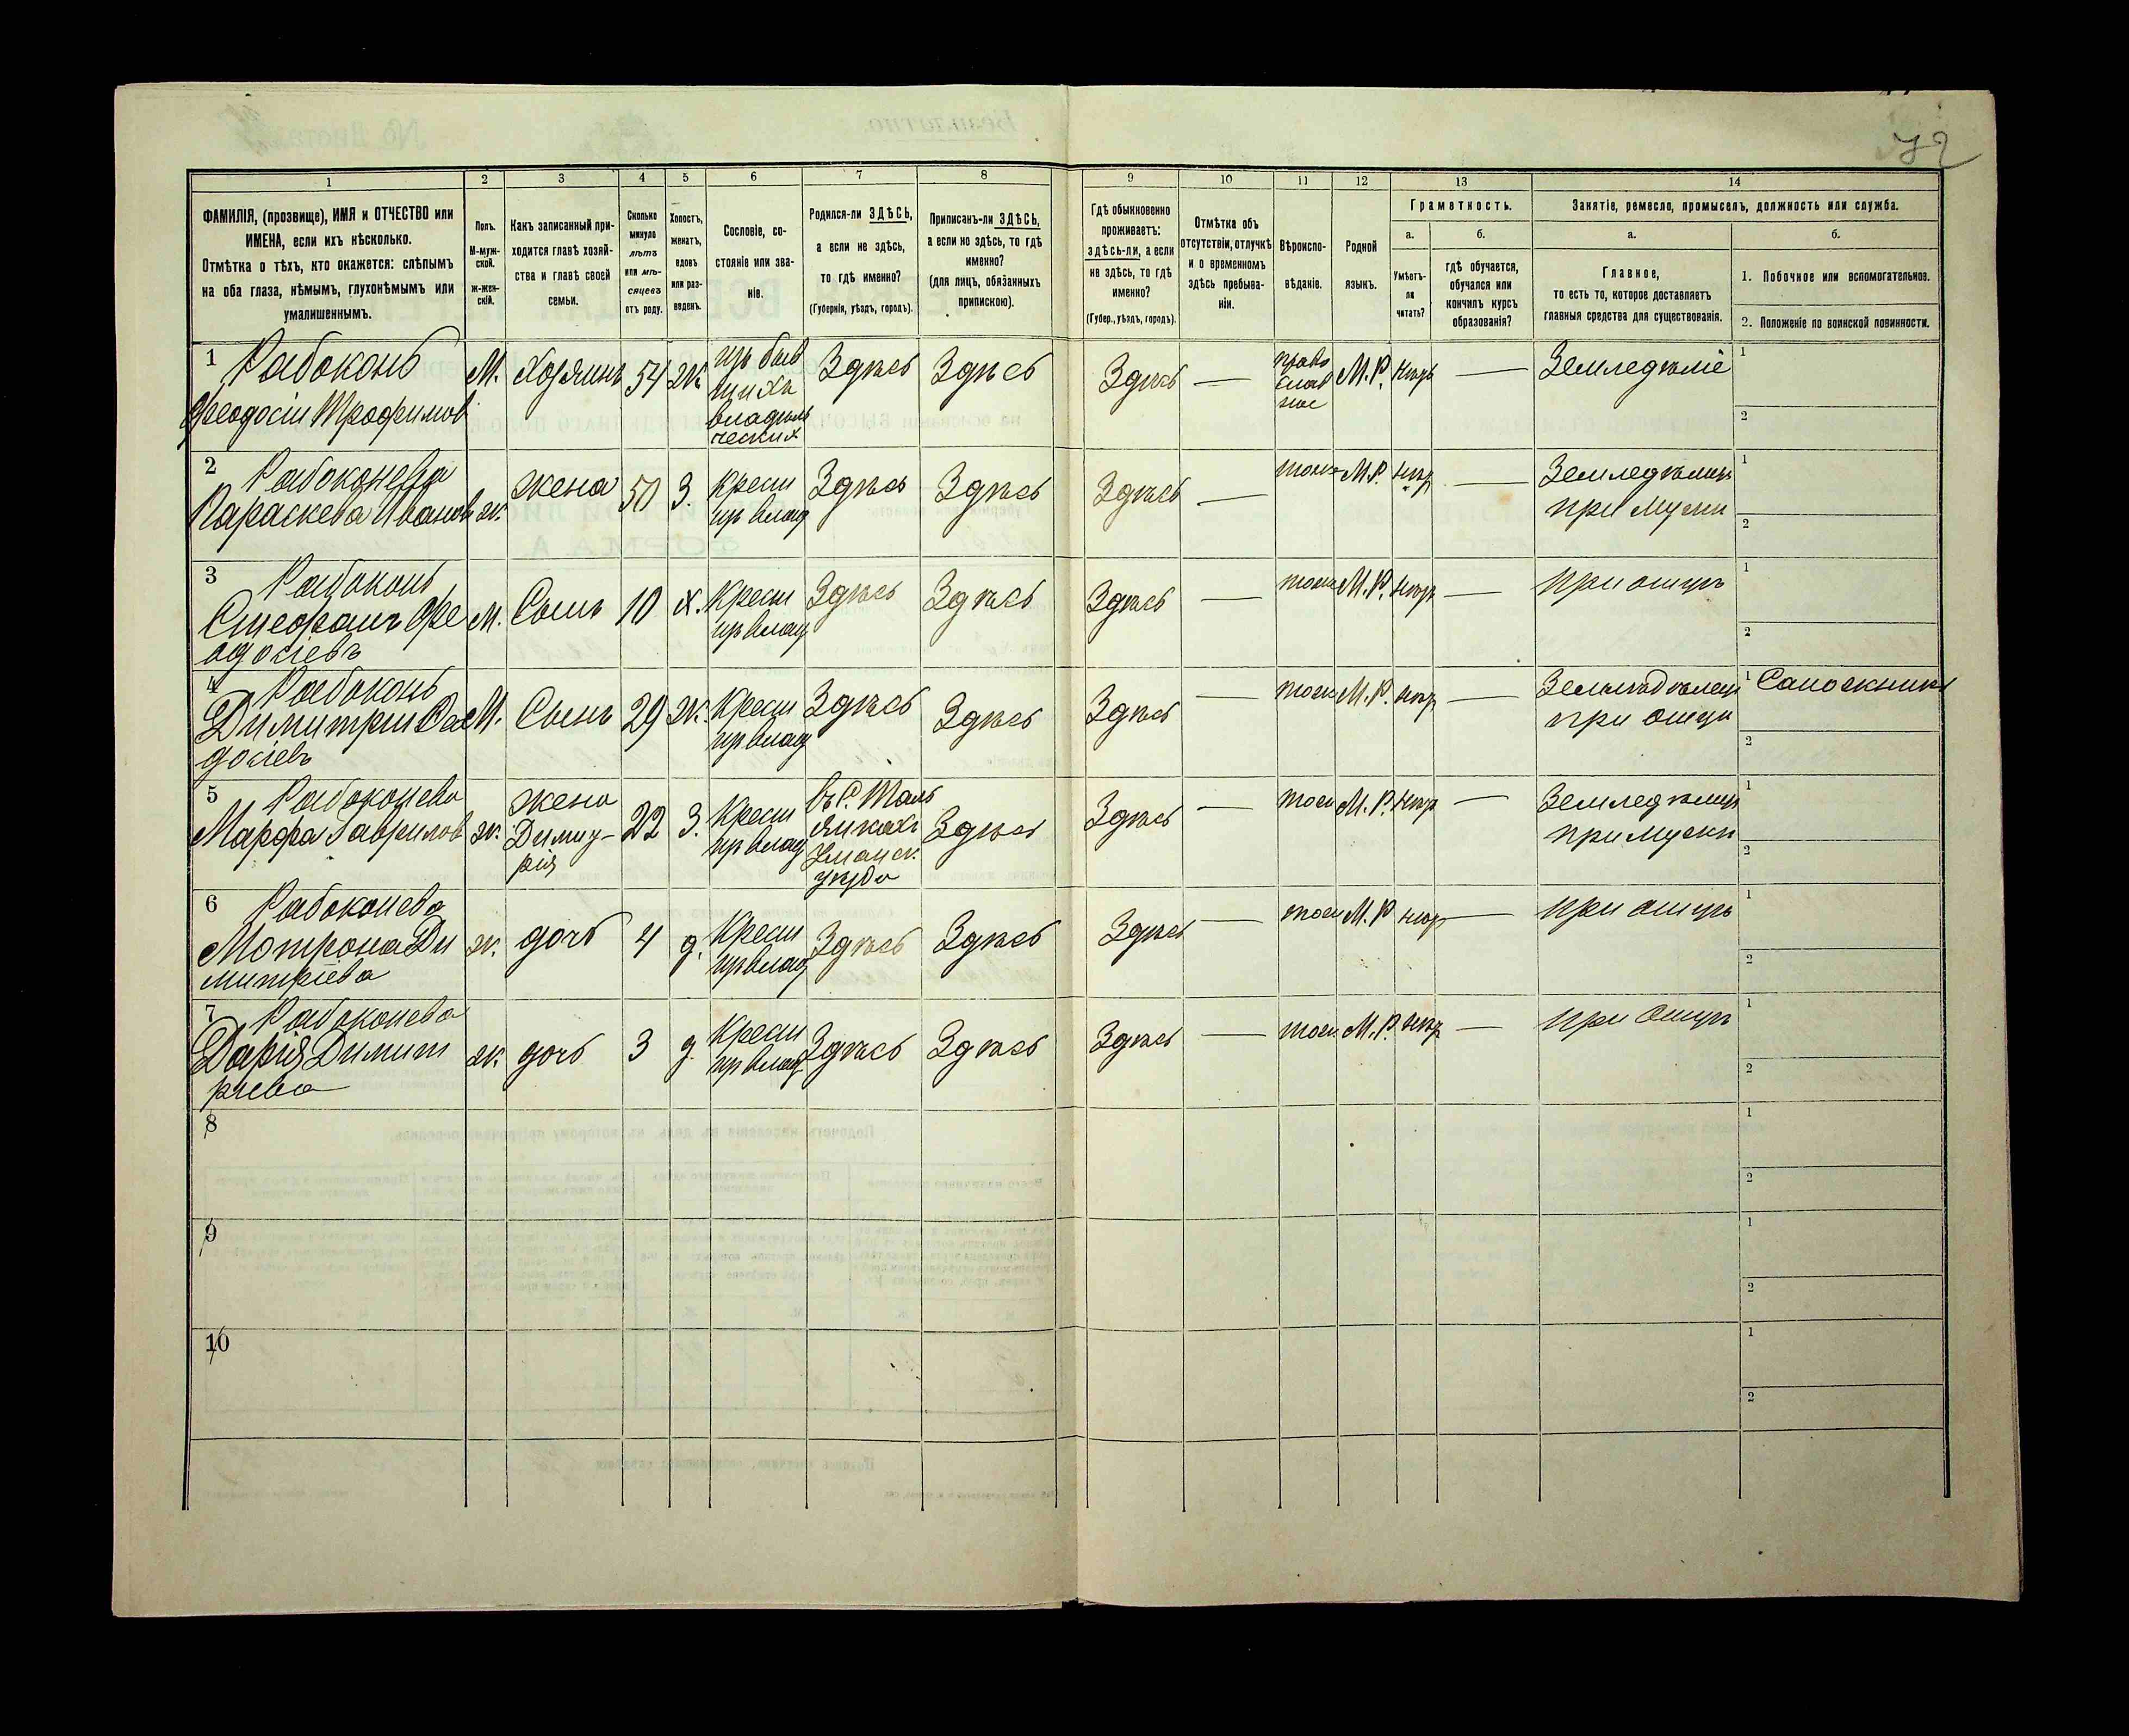 72
1 2 3 4 5 6 7 8 9 10 11 12 13 14
ФАМИЛІЯ, (прозвище), ИМЯ и ОТЧЕСТВО или
ИМЕНА, если ихъ нѣсколько.
Отмѣтка о тѣхъ, кто окажется: слѣпымъ
на оба глаза, нѣмымъ, глухонѣмымъ или
умалишеннымъ.
Полъ.
М-муж-
ской.
ж-жен-
скій.
Какъ записанный при-
ходится главѣ хозяй-
ства и главѣ своей
семьи.
Сколько
минуло
лѣтъ
или мѣ-
сяцевъ
отъ роду.
Холостъ,
женатъ,
вдовъ
или раз-
веденъ.
Сословіе, со-
стояніе или зва-
ніе.
Родился-ли ЗДѢСЬ,
а если не здѣсь,
то гдѣ именно?
(Губернія, уѣздъ, городъ).
Приписанъ-ли ЗДѢСЬ,
а если но здѣсь, то гдѣ
именно?
(для лицъ, обязанныхъ
припискою).
Гдѣ обыкновенно
проживаетъ:
здѣсь-ли, а если
не здѣсь, то гдѣ
именно?
(Губер., уѣздъ, городъ).
Отмѣтка объ
отсутствіи, отлучкѣ
и о временномъ
здѣсь пребыва-
ніи.
Вѣроиспо-
вѣданіе.
Родной
языкъ.
Грамотность.
а.
Умѣетъ-
ли
читать?
б.
гдѣ обучается,
обучался или
кончилъ курсъ
образованія?
Занятіе, ремесло, промыселъ, должность или служба.
а.
Главное,
то есть то, которое доставляетъ
главныя средства для существованія.
б.
1. Побочное или вспомогательное.
2. Положеніе по воинской повинности.
1 Рабоконь
Феодосіи Трофимов
М. Хозяинъ 54 Ж.
изъ быв
шихъ
владѣль
ческих
Здѣсь Здѣсь Здѣсь —
право
слав
ное
М.Р. нѣтъ — Земледѣліе
1
2
2 Рабоконева
Параскева Иванов
ж. жена 50 З.
крест
из влад
Здѣсь Здѣсь Здѣсь — тоже М.Р. нѣт —
Земледѣлец
при мужи
1
2
3 Рабоконь
Стефанъ Фе
одосіевъ
М. Сынъ 10 х.
крест
из влад
Здѣсь Здѣсь Здѣсь — тоже М.Р. нѣт — при отцѣ
1
2
4 Рабоконь
Димитрии Фео
досіевъ
М. Сынъ 29 Ж.
Крест
из влад
Здѣсь Здѣсь Здѣсь — тоже М.Р. нѣт —
Земледѣлец
при отци
1 Сапожникъ
2
5 Рабоконева
Марфа Гаврилов
ж.
жена
Димит-
рія
22 З.
Крест
из влад
въ С. Таль
янкахъ
Уманск.
уѣзда
Здѣсь Здѣсь — тоже М.Р. нѣт —
Земледѣлец
при мужи
1
2
6 Рабоконева
Мотрона Ди
митріева
ж. дочь 4 д.
Крест
из влад
Здѣсь Здѣсь Здѣсь — тоже М.Р нѣт — при отцѣ
1
2
7 Рабоконева
Дарія Димит
риева
ж дочь 3 д.
Крест
из влад
Здѣсь Здѣсь Здѣсь — тоже М.Р. нѣт — при отцѣ
1
2
8
1
2
9
1
2
10
1
2